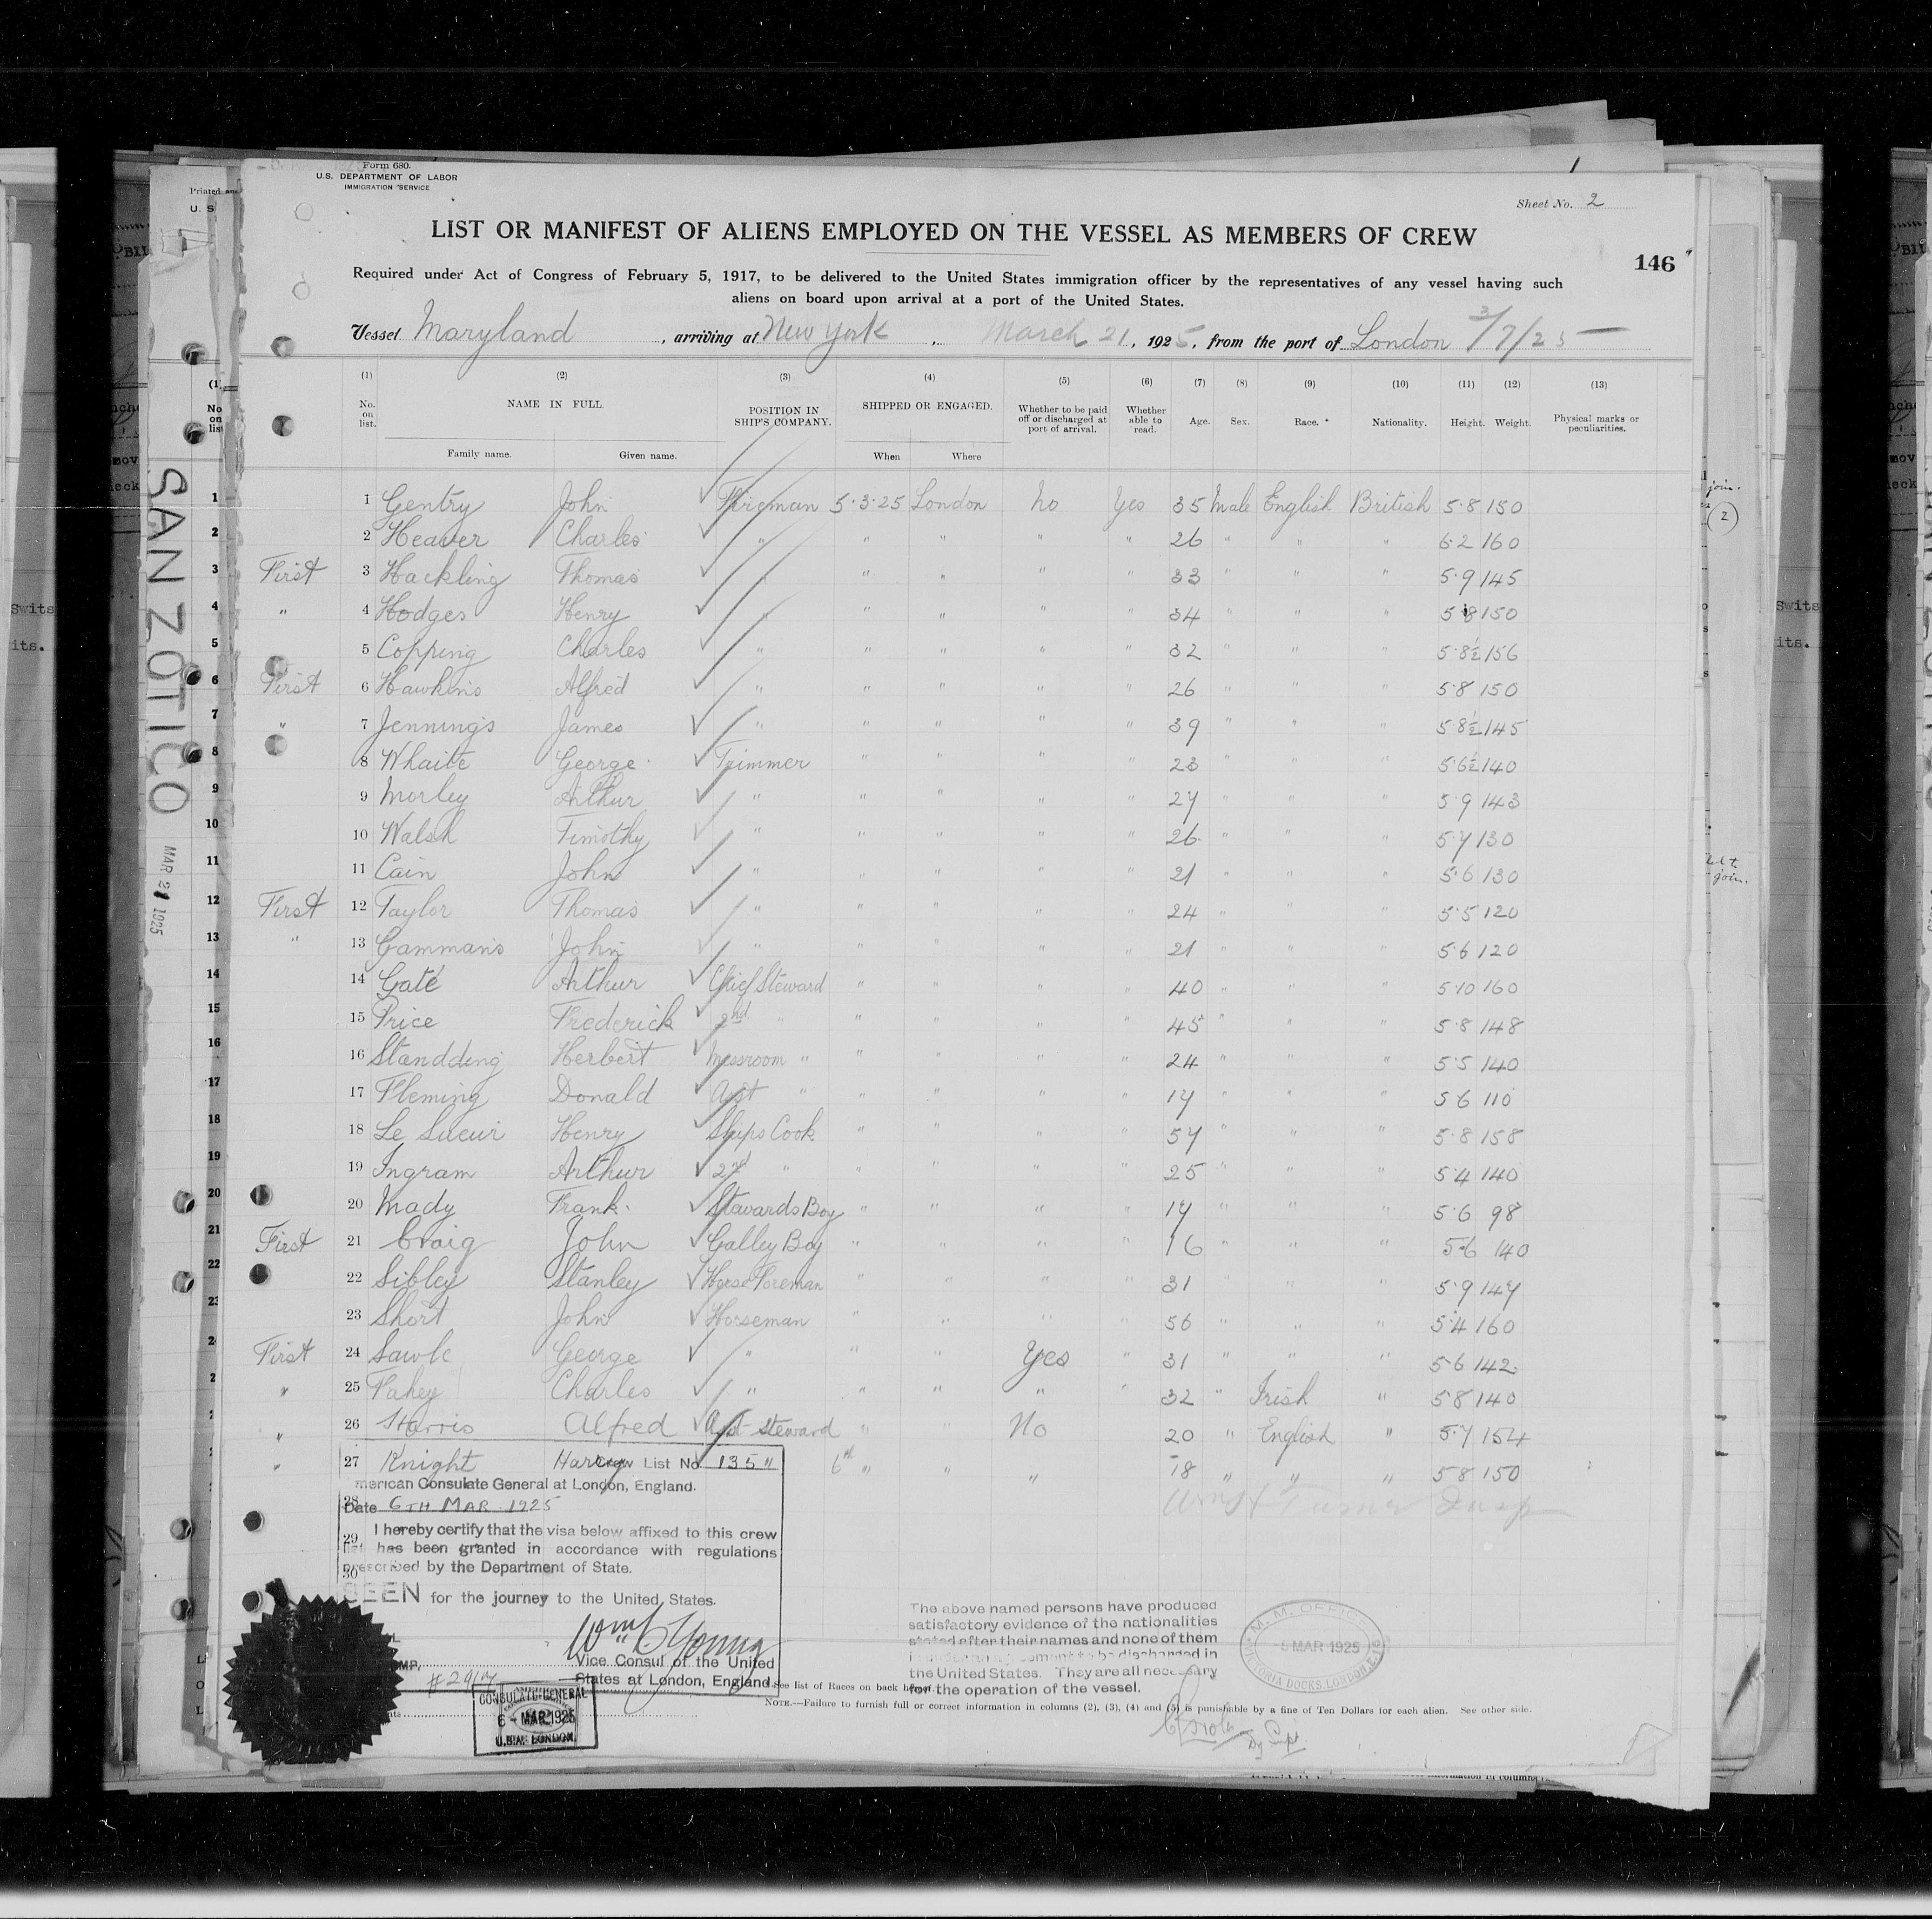 Form 680.
U.S. DEPARTMENT OF LABOR
IMMIGRATION SERVICE
Sheet No. 2
LIST OR MANIFEST OF ALIENS EMPLOYED ON THE VESSEL AS MEMBERS OF CREW
146
Required under Act of Congress of February 5, 1917, to be delivered to the United States immigration officer by the representatives of any vessel having such
aliens on board upon arrival at a port of the United States.
Vessel Maryland, arriving at New York, March 21, 1925, from the port of London 3/7/25
(1) (2) (3) (4) (5) (6) (7) (8) (9) (10) (11) (12) (13)
No. on list. NAME IN FULL. POSITION IN SHIP'S COMPANY. SHIPPED OR ENGAGED. Whether to be paid off or discharged at port of arrival. Whether able to read. Age. Sex. Race. * Nationality. Height. Weight. Physical marks or peculiarities.
Family name. Given name. When Where
1 Gentry John Fireman 5.3.25 London No Yes 35 Male English British 5.8 150
2 Heaver Charles " " " " " 26 " " " 6.2 160
First 3 Hackling Thomas " " " " " 33 " " " 5.9 145
" 4 Hodges Henry " " " " " 34 " " " 5.8 150
5 Copping Charles " " " " " 32 " " " 5.8½ 156
First 6 Hawkins Alfred " " " " " 26 " " " 5.8 150
" 7 Jennings James " " " " " 39 " " " 5.8½ 145
8 Whaite George Trimmer " " " " 23 " " " 5.6½ 140
9 Morley Arthur " " " " " 27 " " " 5.9 143
10 Walsh Timothy " " " " " 26 " " " 5.7 130
11 Cain John " " " " " 21 " " " 5.6 130
First 12 Taylor Thomas " " " " " 24 " " " 5.5 120
" 13 Gammans John " " " " " 21 " " " 5.6 120
14 Gate Arthur Chief Steward " " " " 40 " " " 5.10 160
15 Price Frederick 2nd " " " " " 45 " " " 5.8 148
16 Standding Herbert Messroom " " " " " 24 " " " 5.5 140
17 Fleming Donald Asst " " " " " 17 " " " 5.6 110
18 Le Sueur Henry Ships Cook " " " " 57 " " " 5.8 158
19 Ingram Arthur 2nd " " " " " 25 " " " 5.4 140
20 Mady Frank Stewards Boy " " " " 17 " " " 5.6 98
First 21 Craig John Galley Boy " " " " 16 " " " 5.6 140
22 Sibley Stanley Horse Foreman " " " " 31 " " " 5.9 147
23 Short John Horseman " " " " 56 " " " 5.4 160
First 24 Sawle George " " " Yes " 31 " " " 5.6 142
" 25 Fahey Charles " " " " " 32 " Irish " 5.8 140
" 26 Harris Alfred Asst Steward " " No 20 " English " 5.7 154
" 27 Knight Harry " 6th " " " 18 " " " 5.8 150
Crew List No. 135
American Consulate General at London, England.
28
Date 6TH MAR. 1925
29 I hereby certify that the visa below affixed to this crew
list has been granted in accordance with regulations
30 prescribed by the Department of State.
SEEN for the journey to the United States.
Wm C Young
Vice Consul of the United
States at London, England.
CONSULATE GENERAL
6 - MAR 1925
U.S.A. LONDON.
The above named persons have produced
satisfactory evidence of the nationalities
stated after their names and none of them
to be discharged in
the United States. They are all necessary
for the operation of the vessel.
M. M. OFFICE
5 MAR 1925
VICTORIA DOCKS, LONDON, E.
Dy Supt
See list of Races on back hereof.
NOTE.—Failure to furnish full or correct information in columns (2), (3), (4) and (5) is punishable by a fine of Ten Dollars for each alien. See other side.
SAN ZOTICO
MAR 21 1925